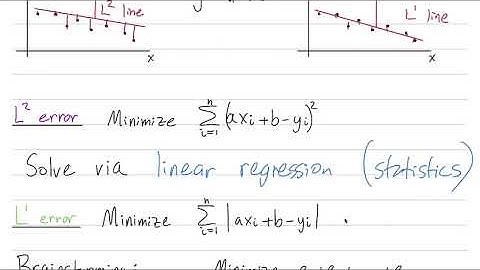 L² line
L¹ line
x
x
L² error Minimize \sum_{i=1}^{n} (ax_i+b-y_i)²
Solve via linear regression (statistics)
L¹ error Minimize \sum_{i=1}^{n} |ax_i+b-y_i|